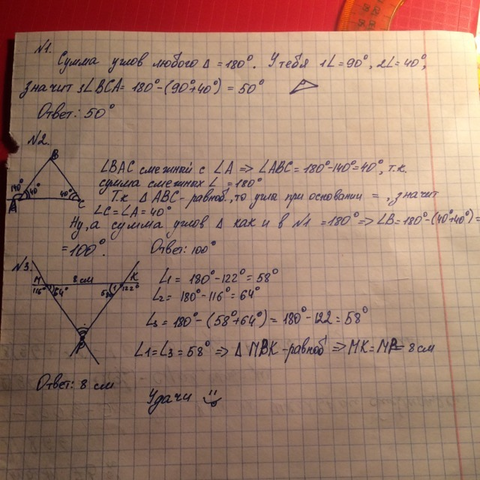 №1.
Сумма углов любого Δ = 180°. У тебя 1L = 90°, 2L = 40°,
значит 3LBCA = 180° - (90° + 40°) = 50°
Ответ: 50°
№2.
B
140° 40° 40° C
LBAC смежный с LA => LABC = 180° - 140° = 40°, т.к.
сумма смежных L = 180°
Т.к ΔABC - равноб., то угла при основании =, значит
LC = LA = 40°
Ну, а сумма углов Δ как и в №1 = 180° => LB = 180° - (40° + 40°) =
= 100°. Ответ: 100°
№3.
M 8 см K
116° 64° 58° 122°
L1 = 180° - 122° = 58°
L2 = 180° - 116° = 64°
L3 = 180° - (58° + 64°) = 180° - 122 = 58°
L1 = L3 = 58° => Δ MBK - равноб => MK = MP = 8 см
Ответ: 8 см
Удачи